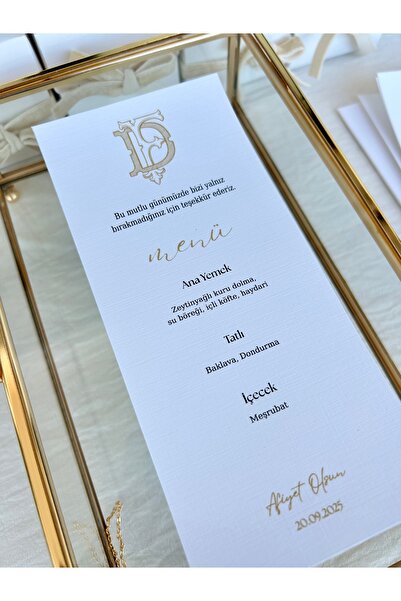 Bu mutlu günümüzde bizi yalnız
bırakmadığınız için teşekkür ederiz.
menü
Ana Yemek
Zeytinyağlı kuru dolma,
su böreği, içli köfte, haydari
Tatlı
Baklava, Dondurma
İçecek
Meşrubat
Afiyet Olsun
20.09.2025